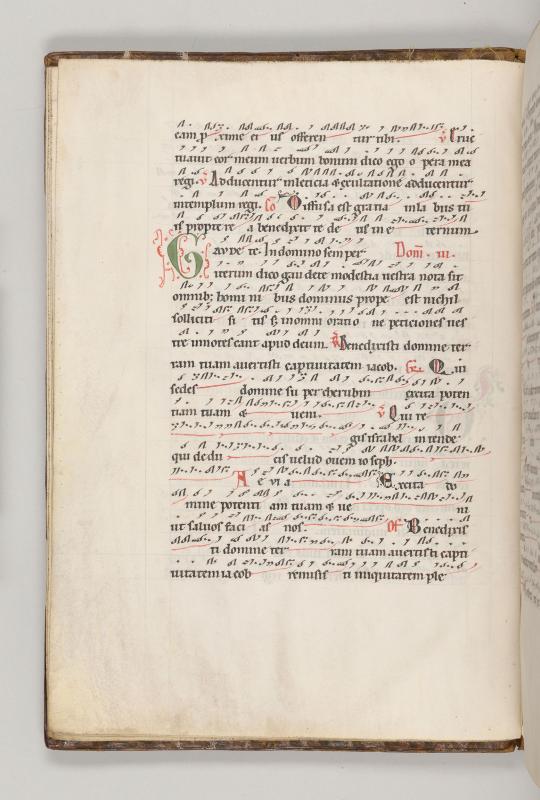 eam pro xime ei us offeren tur tibi. v Eruc
tauaut cor meum uerbum bonum dico ego o pera mea
regi. v Adducentur in leticia & exultatione adducentur
in templum regi. Co Diffusa est gratia in la bi is tu
is propte re a benedixit te de us in e ternum
Gaudete. In domino semper Dom. iii.
iterum dico gau dete modestia uestra nota sit
omnib; homi ni bus dominus prope est nichil
solliciti si tis s; in omni oratio ne peticiones ues
tre innotescant apud deum. Benedixisti domine ter
ram tuam auertisti captiuitatem iacob. Gr. Qui
sedes domine su per cherubim excita poten
tiam tuam & ueni. v Qui re
gis israhel in tende
qui de du cis uelud ouem io seph.
A e vi a Excita do
mine potenti am tuam & ue ni
ut saluos faci as nos. Of Benedixis
ti domine ter ram tuam auertisti capti
uitatem ia cob remisis ti iniquitatem ple